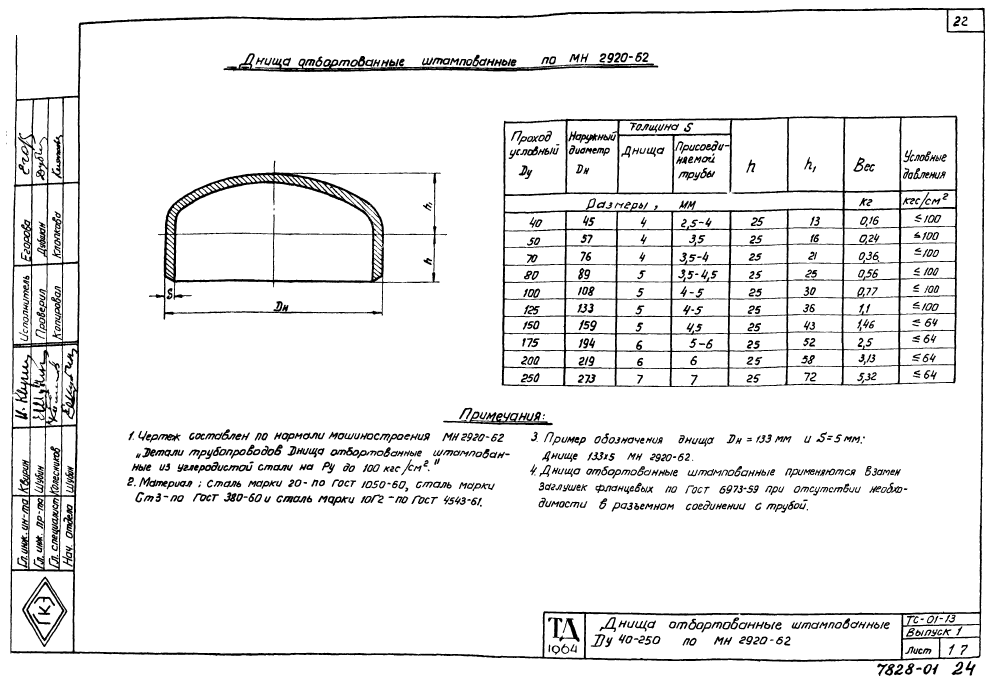 22
Днища отбортованные штампованные по МН 2920-62
Проход условный Ду | Наружный диаметр Dн | Толщина S | h | h₁ | Вес | Условные давления
Днища | Присоединяемой трубы
Размеры, мм | кг | кгс/см²
40 45 4 2,5-4 25 13 0,16 ≤100
50 57 4 3,5 25 16 0,24 ≤100
70 76 4 3,5-4 25 21 0,36 ≤100
80 89 5 3,5-4,5 25 25 0,56 ≤100
100 108 5 4-5 25 30 0,77 ≤100
125 133 5 4-5 25 36 1,1 ≤100
150 159 5 4,5 25 43 1,46 ≤64
175 194 6 5-6 25 52 2,5 ≤64
200 219 6 6 25 58 3,13 ≤64
250 273 7 7 25 72 5,32 ≤64
h₁
h
S
Dн
Примечания:
1. Чертеж составлен по нормали машиностроения МН 2920-62
„Детали трубопроводов Днища отбортованные штампован-
ные из углеродистой стали на Ру до 100 кгс/см²."
2. Материал: сталь марки 20-по Гост 1050-60, сталь марки
Ст3-по Гост 380-60 и сталь марки 10Г2-по Гост 4543-61.
3. Пример обозначения днища Dн=133 мм и S=5 мм:
Днище 133х5 МН 2920-62.
4. Днища отбортованные штампованные применяются взамен
Заглушек фланцевых по Гост 6973-59 при отсутствии необхо-
димости в разъемном соединении с трубой.
Исполнитель Егорова
Проверил
Копировал Клопкова
Гл. инж. ин-та
Гл. инж. пр-та Шубин
Гл. специалист Колесников
Нач. отдела Шубин
ГКЭ
ТД
1964
Днища отбортованные штампованные
Ду 40-250 по МН 2920-62
ТС-01-13
Выпуск 1
Лист 17
7828-01 24